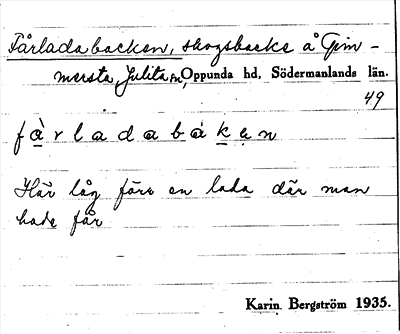 Fårladabacken, skogsbacke å Gim-
mersta, Julita sn, Oppunda hd, Södermanlands län.
49
fàrladabàkẹn
Här låg förr en lada där man
hade får
Karin Bergström 1935.